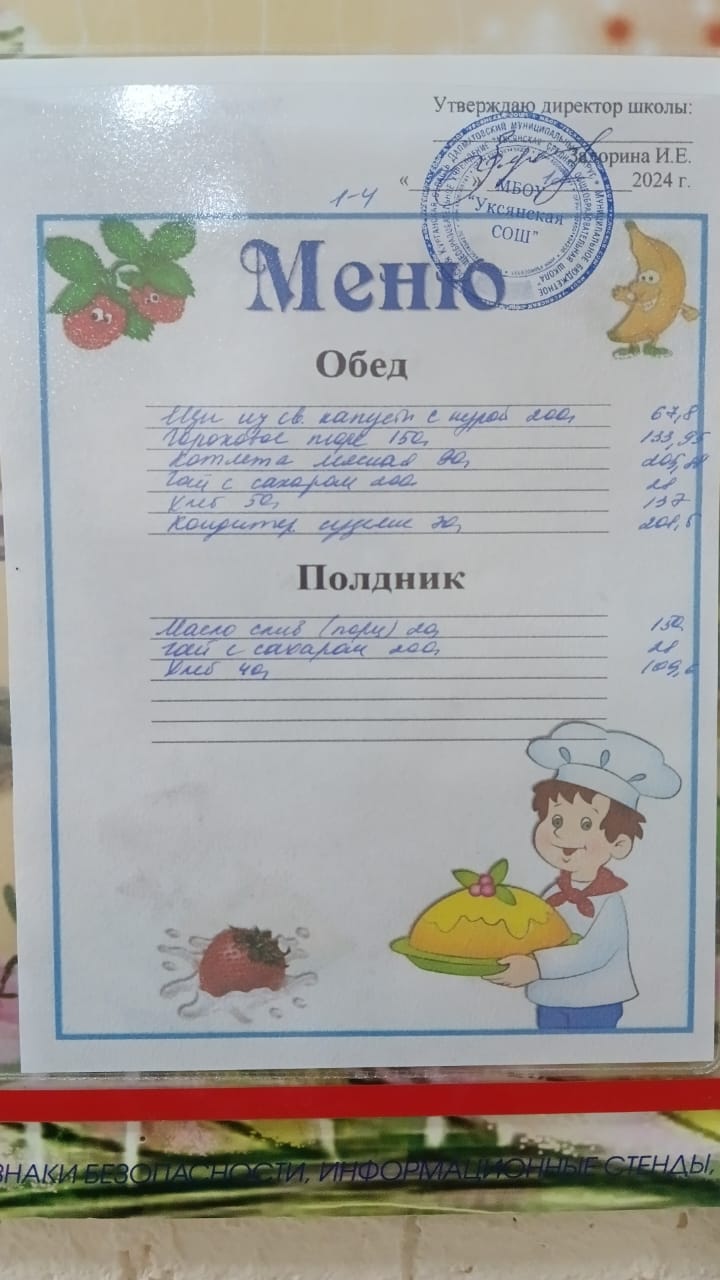 Утверждаю директор школы:
Задорина И.Е.
« » 2024 г.
МБОУ
"Уксянская
СОШ"
1-4
Меню
Обед
Щи из св. капусты с курой 200г 67,8
Гороховое пюре 150г 133,95
Котлета мясная 90г
Чай с сахаром 200г 28
Хлеб 50г 137
Кондитер. изделие 208,5
Полдник
Масло слив (порц) 20г 150
Чай с сахаром 200г 28
Хлеб 40г 109,6
ЗНАКИ БЕЗОПАСНОСТИ, ИНФОРМАЦИОННЫЕ СТЕНДЫ,